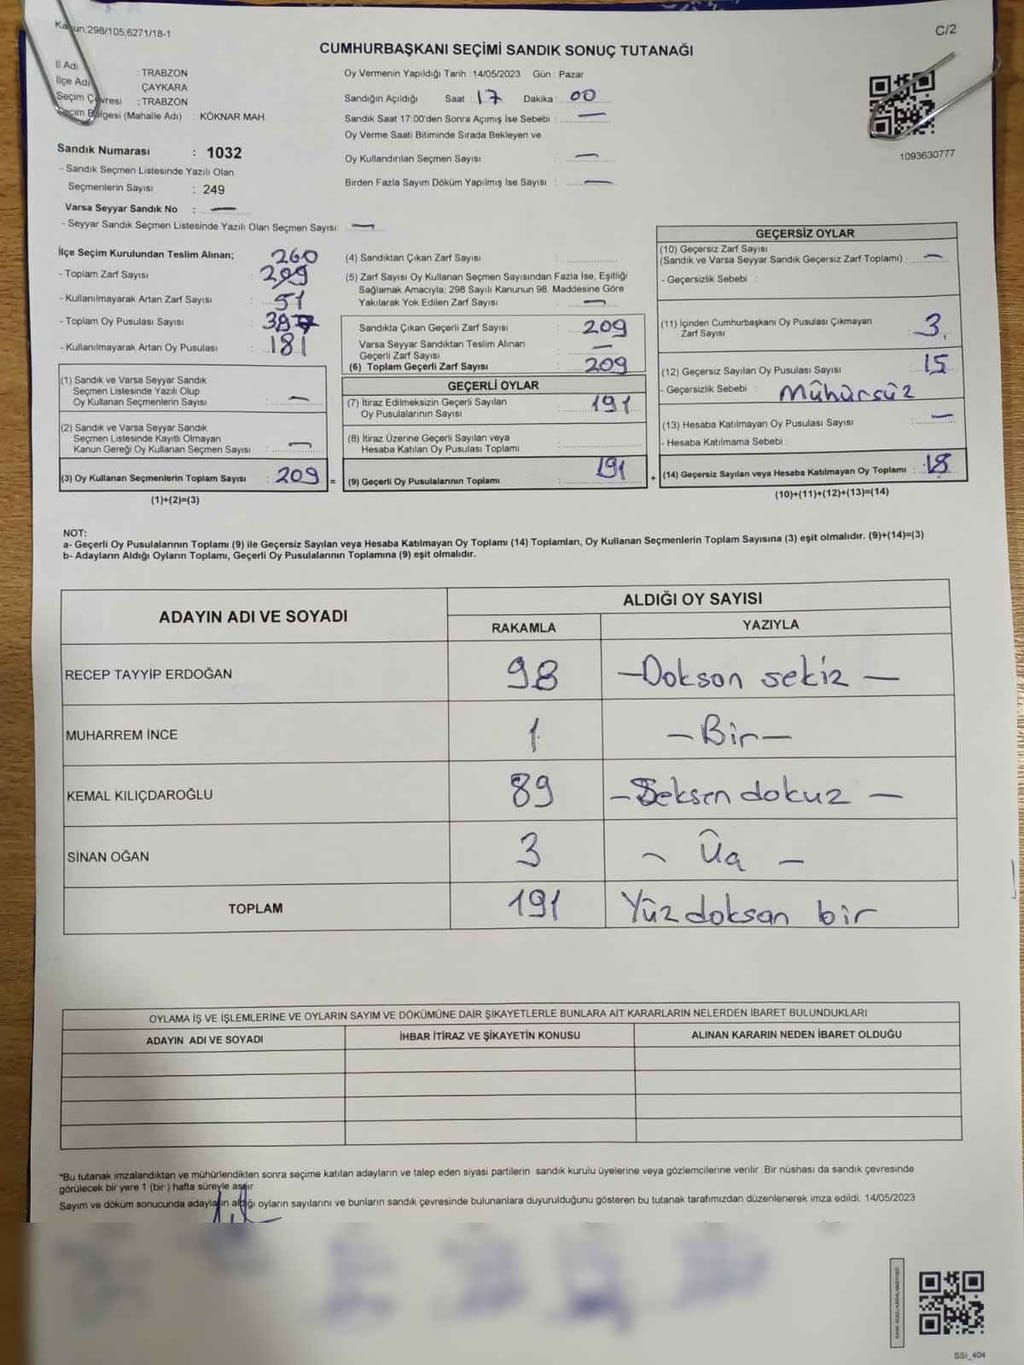 Kanun:298/105,6271/18-1
C/2
CUMHURBAŞKANI SEÇİMİ SANDIK SONUÇ TUTANAĞI
İl Adı : TRABZON
İlçe Adı ÇAYKARA
Seçim Çevresi : TRABZON
Seçim Bölgesi (Mahalle Adı) : KÖKNAR MAH
Sandık Numarası : 1032
- Sandık Seçmen Listesinde Yazılı Olan
Seçmenlerin Sayısı : 249
Varsa Seyyar Sandık No : —
- Seyyar Sandık Seçmen Listesinde Yazılı Olan Seçmen Sayısı: —
Oy Vermenin Yapıldığı Tarih :14/05/2023 Gün : Pazar
Sandığın Açıldığı Saat : 17 Dakika : 00
Sandık Saat 17.00'den Sonra Açımış İse Sebebi : —
Oy Verme Saati Bitiminde Sırada Bekleyen ve
Oy Kullandırılan Seçmen Sayısı : —
Birden Fazla Sayım Döküm Yapılmış İse Sayısı : —
1093630777
İlçe Seçim Kurulundan Teslim Alınan; 260
- Toplam Zarf Sayısı
- Kullanılmayarak Artan Zarf Sayısı : 51
- Toplam Oy Pusulası Sayısı
- Kullanılmayarak Artan Oy Pusulası : 181
(1) Sandık ve Varsa Seyyar Sandık
Seçmen Listesinde Yazılı Olup
Oy Kullanan Seçmenlerin Sayısı : —
(2) Sandık ve Varsa Seyyar Sandık
Seçmen Listesinde Kayıtlı Olmayan
Kanun Gereği Oy Kullanan Seçmen Sayısı : —
(3) Oy Kullanan Seçmenlerin Toplam Sayısı : 209 =
(1)+(2)=(3)
(4) Sandıktan Çıkan Zarf Sayısı :
(5) Zarf Sayısı Oy Kullanan Seçmen Sayısından Fazla İse, Eşitliği
Sağlamak Amacıyla; 298 Sayılı Kanunun 98. Maddesine Göre
Yakılarak Yok Edilen Zarf Sayısı : —
Sandıkta Çıkan Geçerli Zarf Sayısı : 209
Varsa Seyyar Sandıktan Teslim Alınan
Geçerli Zarf Sayısı : —
(6) Toplam Geçerli Zarf Sayısı : 209
GEÇERLİ OYLAR
(7) İtiraz Edilmeksizin Geçerli Sayılan
Oy Pusulalarının Sayısı : 191
(8) İtiraz Üzerine Geçerli Sayılan veya
Hesaba Katılan Oy Pusulası Toplamı :
(9) Geçerli Oy Pusulalarının Toplamı : 191 +
GEÇERSİZ OYLAR
(10) Geçersiz Zarf Sayısı
(Sandık ve Varsa Seyyar Sandık Geçersiz Zarf Toplamı) : —
- Geçersizlik Sebebi :
(11) İçinden Cumhurbaşkanı Oy Pusulası Çıkmayan
Zarf Sayısı : 3
(12) Geçersiz Sayılan Oy Pusulası Sayısı : 15
- Geçersizlik Sebebi : Mühürsüz
(13) Hesaba Katılmayan Oy Pusulası Sayısı : —
- Hesaba Katılmama Sebebi :
(14) Geçersiz Sayılan veya Hesaba Katılmayan Oy Toplamı : 18
(10)+(11)+(12)+(13)=(14)
NOT:
a- Geçerli Oy Pusulalarının Toplamı (9) ile Geçersiz Sayılan veya Hesaba Katılmayan Oy Toplamı (14) Toplamları, Oy Kullanan Seçmenlerin Toplam Sayısına (3) eşit olmalıdır. (9)+(14)=(3)
b- Adayların Aldığı Oyların Toplamı, Geçerli Oy Pusulalarının Toplamına (9) eşit olmalıdır.
ADAYIN ADI VE SOYADI
ALDIĞI OY SAYISI
RAKAMLA YAZIYLA
RECEP TAYYİP ERDOĞAN 98 —Dokson sekiz —
MUHARREM İNCE 1 —Bir—
KEMAL KILIÇDAROĞLU 89 —Seksen dokuz —
SİNAN OĞAN 3 — Üç —
TOPLAM 191 Yüz doksan bir
OYLAMA İŞ VE İŞLEMLERİNE VE OYLARIN SAYIM VE DÖKÜMÜNE DAİR ŞİKAYETLERLE BUNLARA AİT KARARLARIN NELERDEN İBARET BULUNDUKLARI
ADAYIN ADI VE SOYADI İHBAR İTİRAZ VE ŞİKAYETİN KONUSU ALINAN KARARIN NEDEN İBARET OLDUĞU
*Bu tutanak imzalandıktan ve mühürlendikten sonra seçime katılan adayların ve talep eden siyasi partilerin sandık kurulu üyelerine veya gözlemcilerine verilir. Bir nüshası da sandık çevresinde
görülecek bir yere 1 (bir) hafta süreyle asılır.
Sayım ve döküm sonucunda adayların aldığı oyların sayılarını ve bunların sandık çevresinde bulunanlara duyurulduğunu gösteren bu tutanak tarafımızdan düzenlenerek imza edildi. 14/05/2023
SSI_404